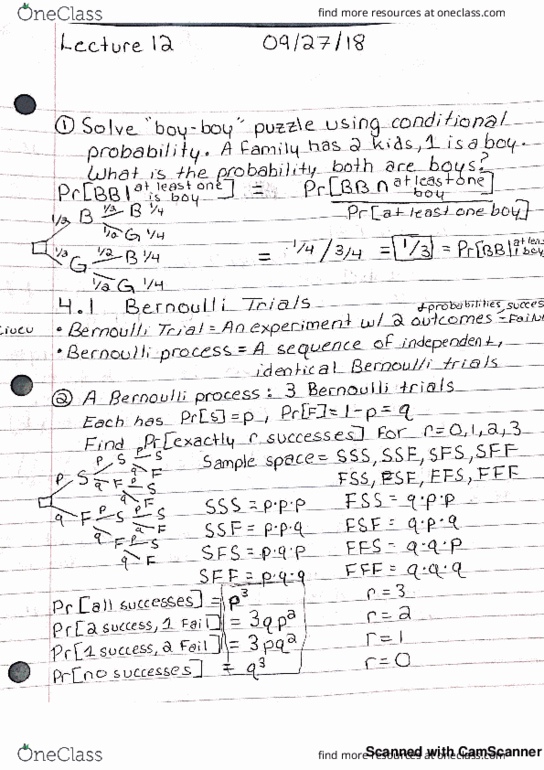 OneClass
find more resources at oneclass.com
Lecture 12 09/27/18
① Solve "boy-boy" puzzle using conditional
probability. A family has 2 kids, 1 is a boy.
What is the probability both are boys?
Pr[BB| at least one is boy] = Pr[BB ∩ at least one boy]
Pr[at least one boy]
1/2 B 1/2 B 1/4
1/2 G 1/4
1/2 G 1/2 B 1/4
1/2 G 1/4
= 1/4 / 3/4 = 1/3 = Pr[BB|
4.1 Bernoulli Trials
+probabilities
• Bernoulli Trial = An experiment w/ 2 outcomes
• Bernoulli process = A sequence of independent,
identical Bernoulli trials
② A Bernoulli process: 3 Bernoulli trials
Each has Pr[S]=p, Pr[F]=1-p=q
Find Pr[exactly r successes] for r=0,1,2,3
Sample space = SSS, SSF, SFS, SFF
FSS, FSF, FFS, FFF
p S p S p S
q F
q F p S
q F
q F p S p S
q F
q F p S
q F
SSS = p·p·p FSS = q·p·p
SSF = p·p·q FSF = q·p·q
SFS = p·q·p FFS = q·q·p
SFF = p·q·q FFF = q·q·q
Pr[all successes] = p³ r=3
Pr[2 success, 1 Fail] = 3qp² r=2
Pr[1 success, 2 Fail] = 3pq² r=1
Pr[no successes] = q³ r=0
OneClass
find more resources at oneclass.com
Scanned with CamScanner